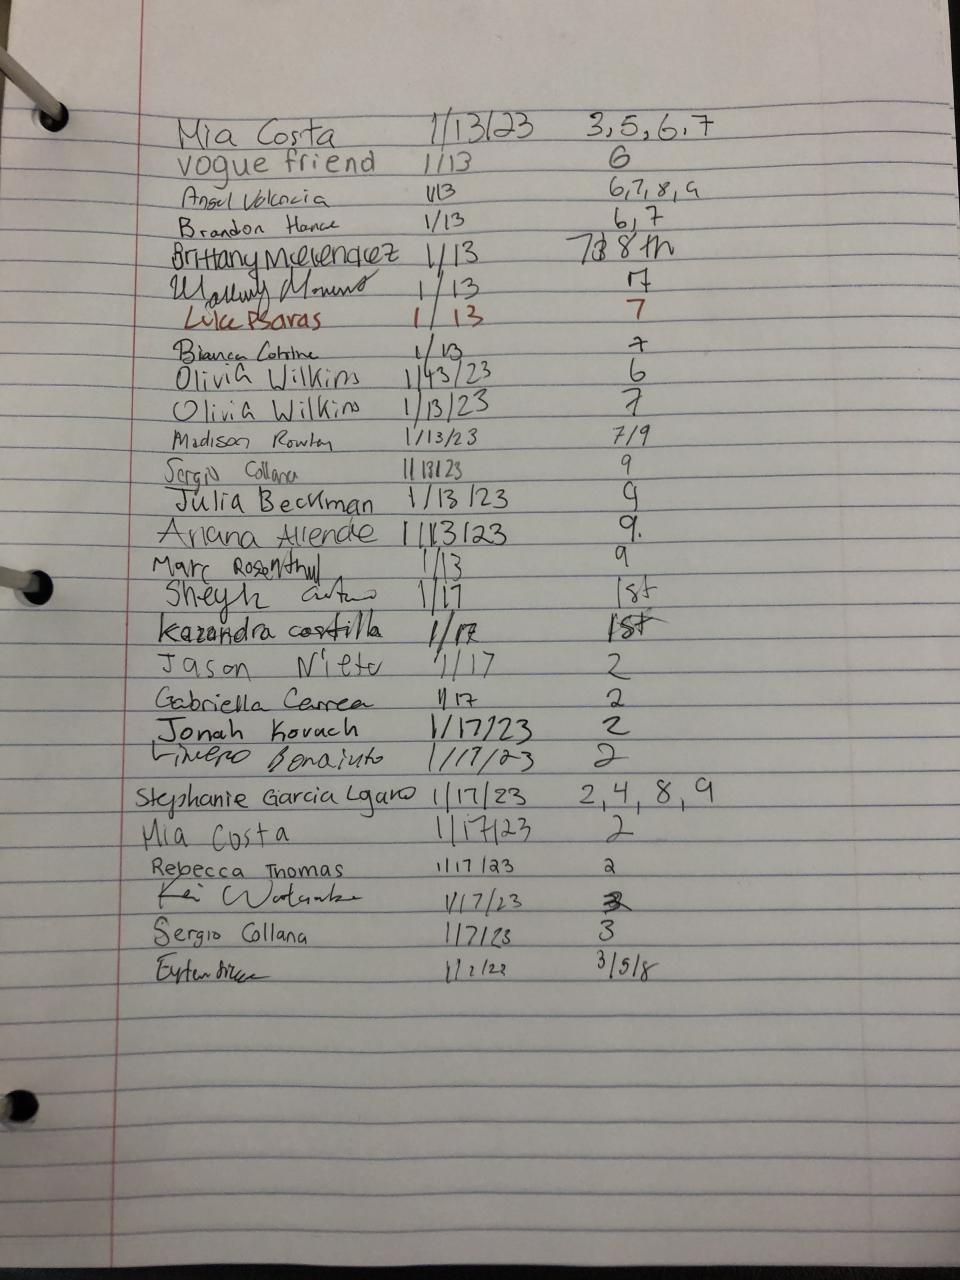 Mia Costa 1/13/23 3,5,6,7
vogue friend 1/13 6
Angel Valencia 1/13 6,7,8,9
Brandon Hance 1/13 6,7
Brittany Melendez 1/13 7 & 8th
Moreno 1/13 7
Luke Psaras 1/13 7
Bianca 1/13 7
Olivia Wilkins 1/13/23 6
Olivia Wilkins 1/13/23 7
Madison 1/13/23 7/9
Sergio Collana 1/13/23 9
Julia Beckman 1/13/23 9
Ariana Allende 1/13/23 9.
Marc Rosenthal 1/13 9
Sheyk 1/17 1st
Kazandra costilla 1/17 1st
Jason Nieto 1/17 2
Gabriella Correa 1/17 2
Jonah Kovach 1/17/23 2
Bonaiuto 1/17/23 2
Stephanie Garcia Lgaro 1/17/23 2,4,8,9
Mia Costa 1/17/23 2
Rebecca Thomas 1/17/23 2
Kei 1/17/23 3
Sergio Collana 1/7/23 3
3/5/8